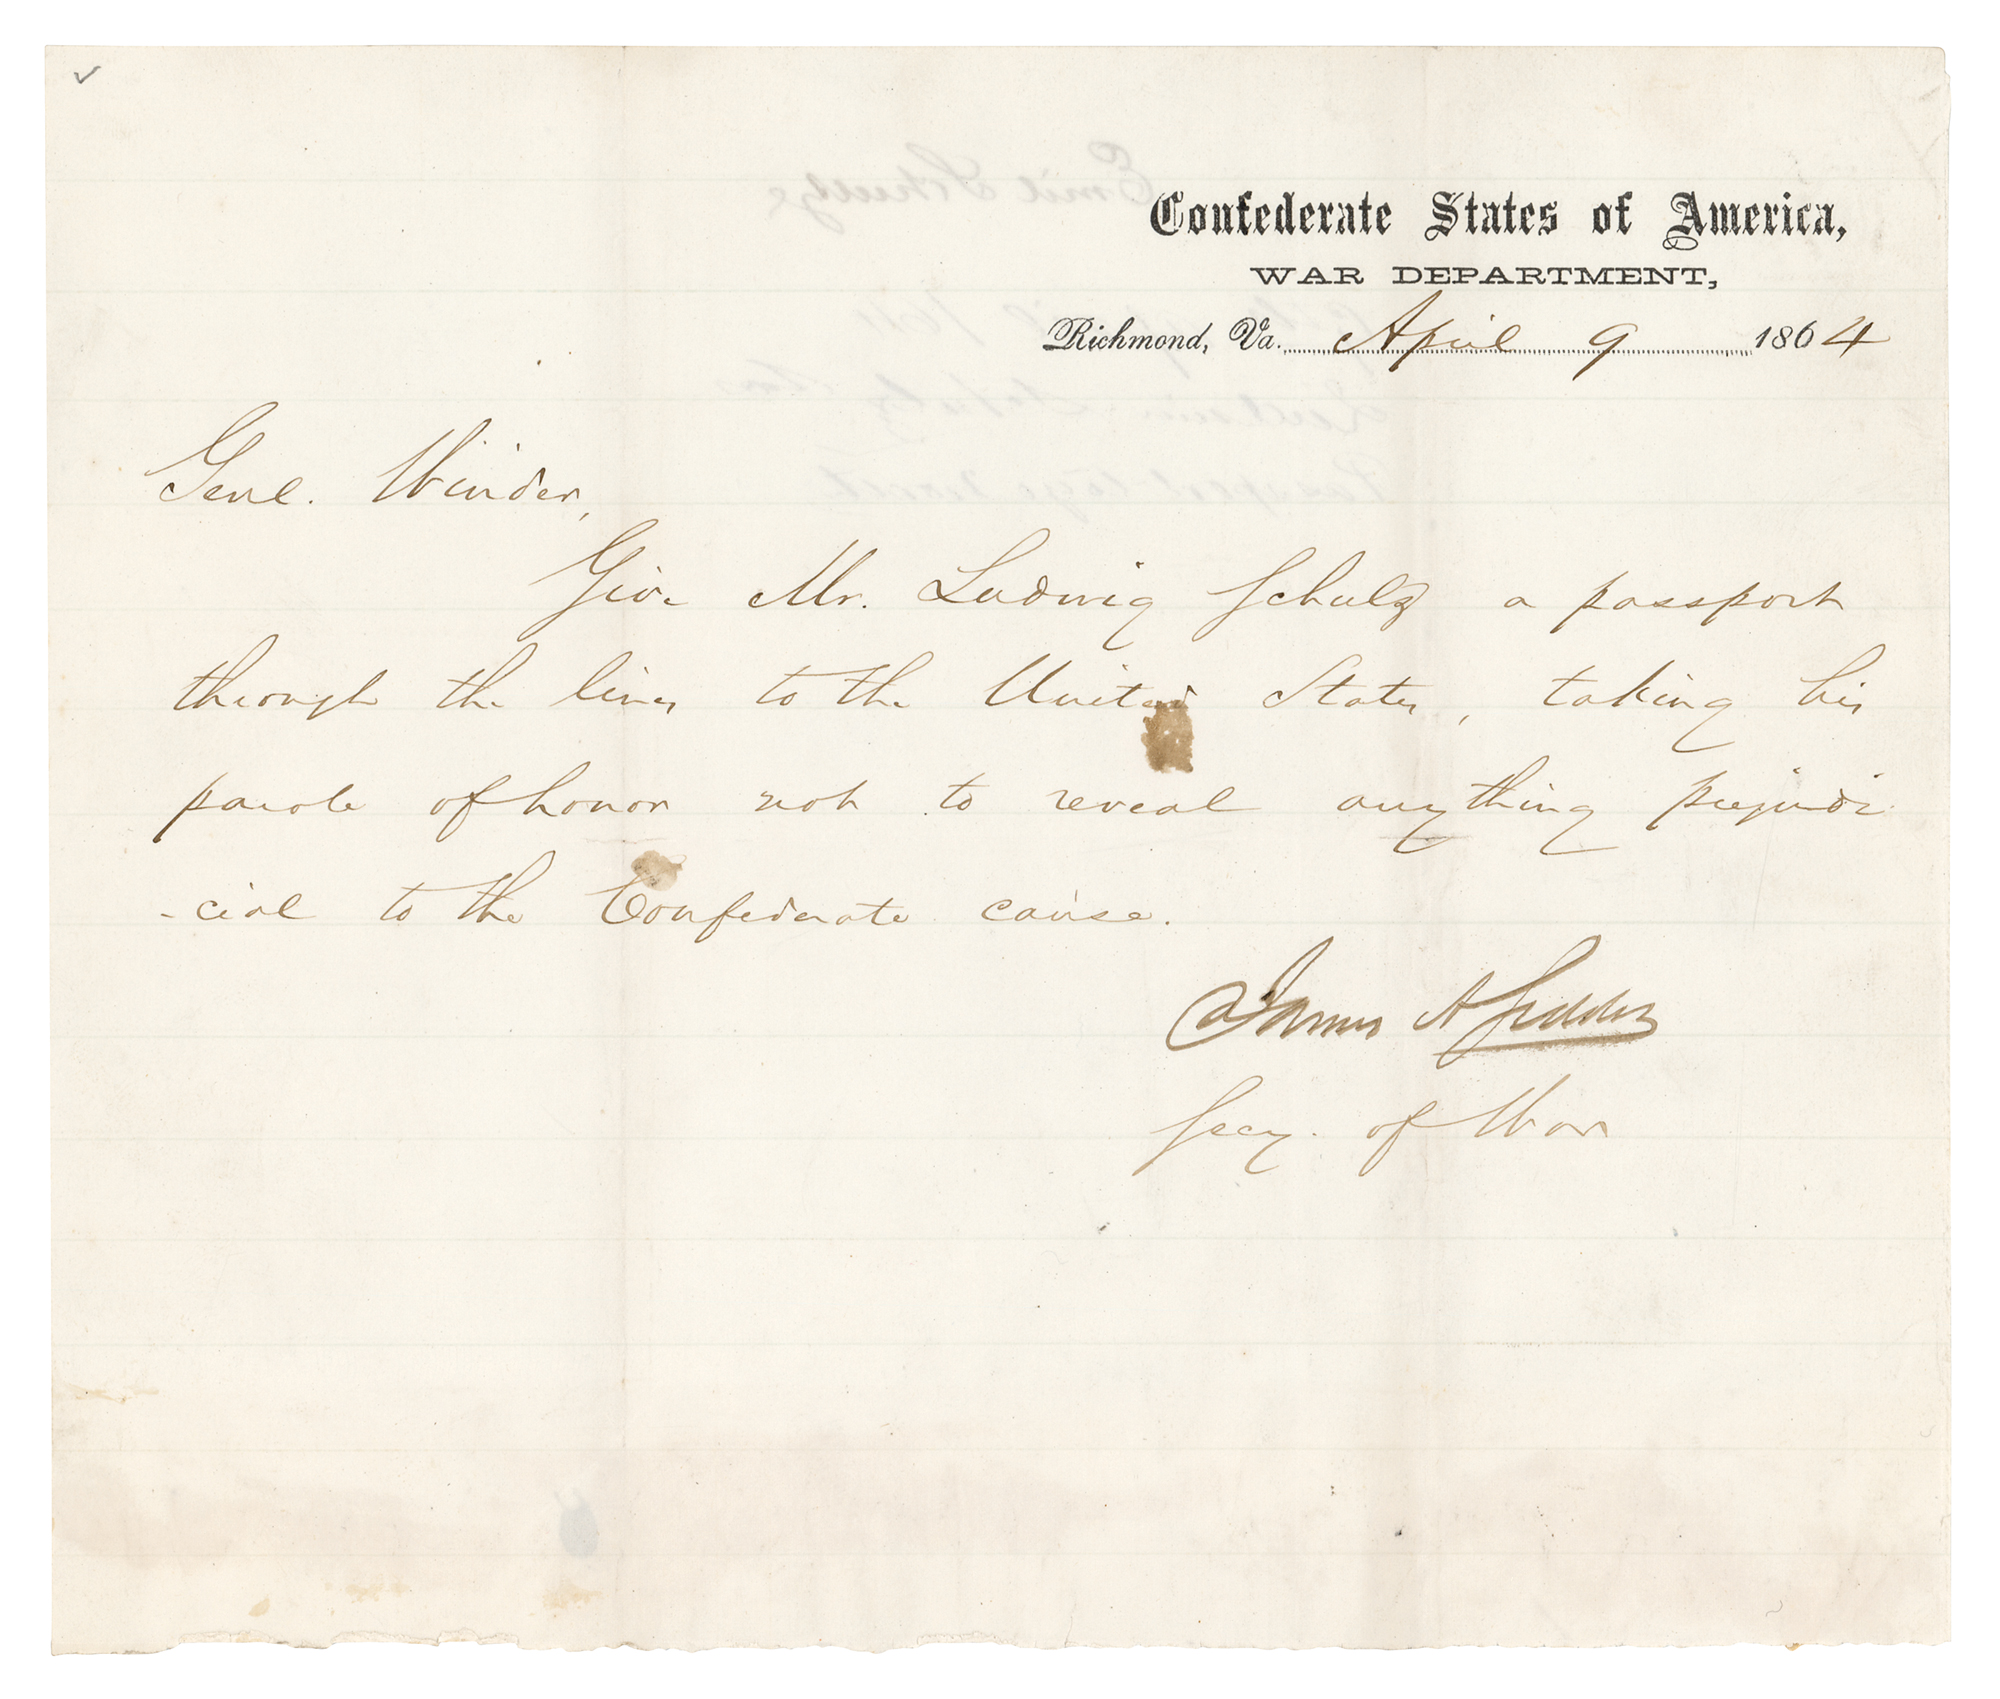 Confederate States of America,
WAR DEPARTMENT,
Richmond, Va. April 9 1864
Genl. Winder,
Give Mr. Ludwig Schulz a passport
through the lines to the United States, taking his
parole of honor not to reveal anything prejudi
-cial to the Confederate cause.
James A Seddon
Secy. of War
Emil Schulz